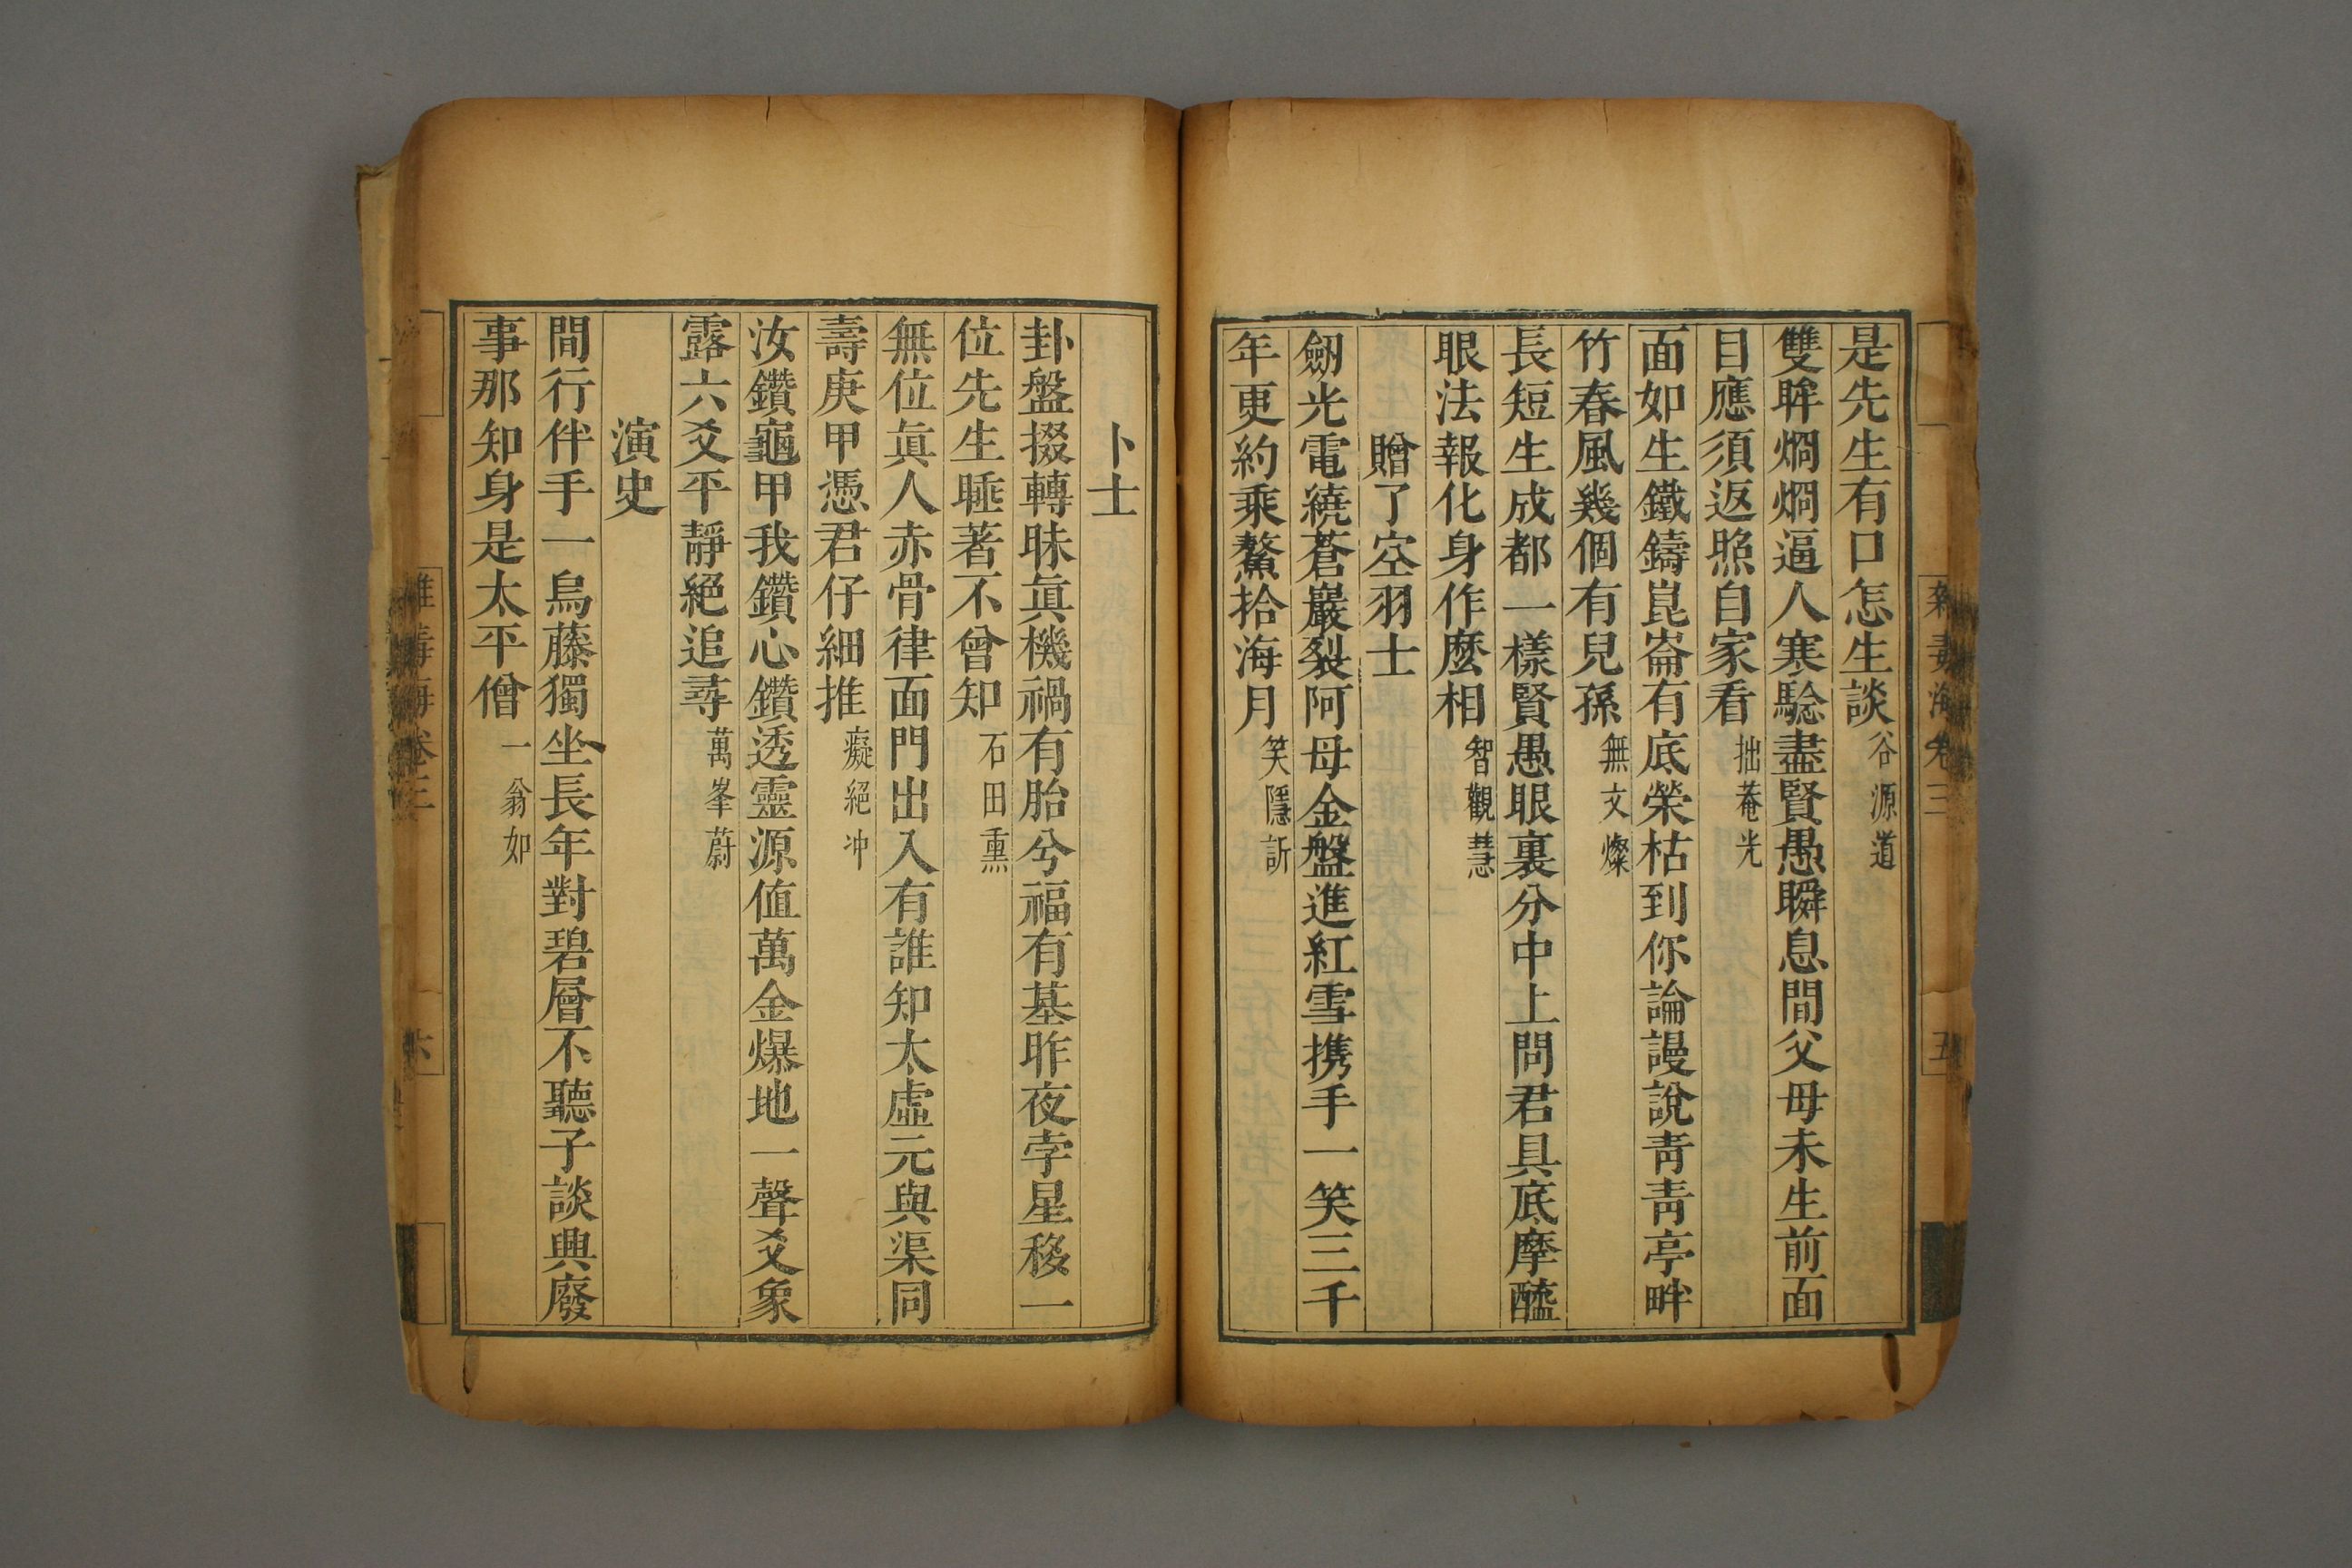 是先生有口怎生談谷源道
雙眸烱烱逼人寒驗盡賢愚瞬息間父母未生前面
目應須返照自家看拙菴光
面如生鐵鑄崑崙有底榮枯到你論謾說靑靑亭畔
竹春風幾個有兒孫無文燦
長短生成都一樣賢愚眼裏分中上問君具底摩醯
眼法報化身作麽相智觀慧
贈了空羽士
劒光電繞蒼巖裂阿母金盤進紅雪携手一笑三千
年更約乘鰲拾海月笑隱訢
卜士
卦盤掇轉昧眞機禍有胎兮福有基昨夜孛星移一
位先生睡著不曾知石田熏
無位眞人赤骨律面門出入有誰知太虛元與渠同
壽庚甲憑君仔細推癡絕冲
汝鑽龜甲我鑽心鑽透靈源値萬金爆地一聲爻象
露六爻平靜絕追尋萬峯蔚
演史
間行伴手一烏藤獨坐長年對碧層不聽子談興廢
事那知身是太平僧一翁如
雜毒海卷三
五
六